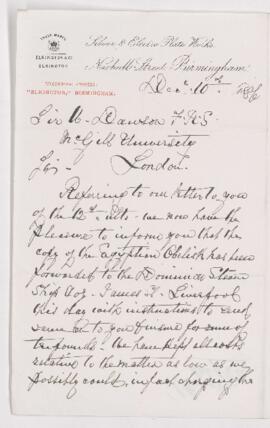 TRADE MARKS.
ELKINGTON & CO
ELKINGTON
Silver & Electro Plate Works.
Newhall Street, Birmingham,
TELEGRAPHIC ADDRESS:
"ELKINGTON, BIRMINGHAM."
Decr 10th
Sir W. Dawson F.R.S.
McGill University
London.
Sir,
Referring to our letter to you
of the 12th ulto. we now have the
pleasure to inform you that the
copy of the Egyptian Obelisk has been
forwarded to the Dominion Steam
Ship Co. James St Liverpool
this day with instructions to send
same on to you & insure for sum of
pounds. We have kept all costs
relative to the matter as low as we
possibly could, in fact charging the